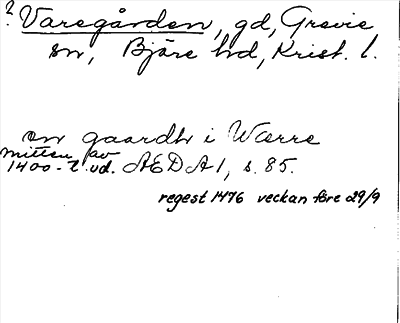 ? Varegården, gd, Grevie
sn, Bjäre hd, Krist. l.
en gaardh i Wærre
mitten av
1400-t. ud. ÆDA 1, s. 85.
regest 1476 veckan före 29/9